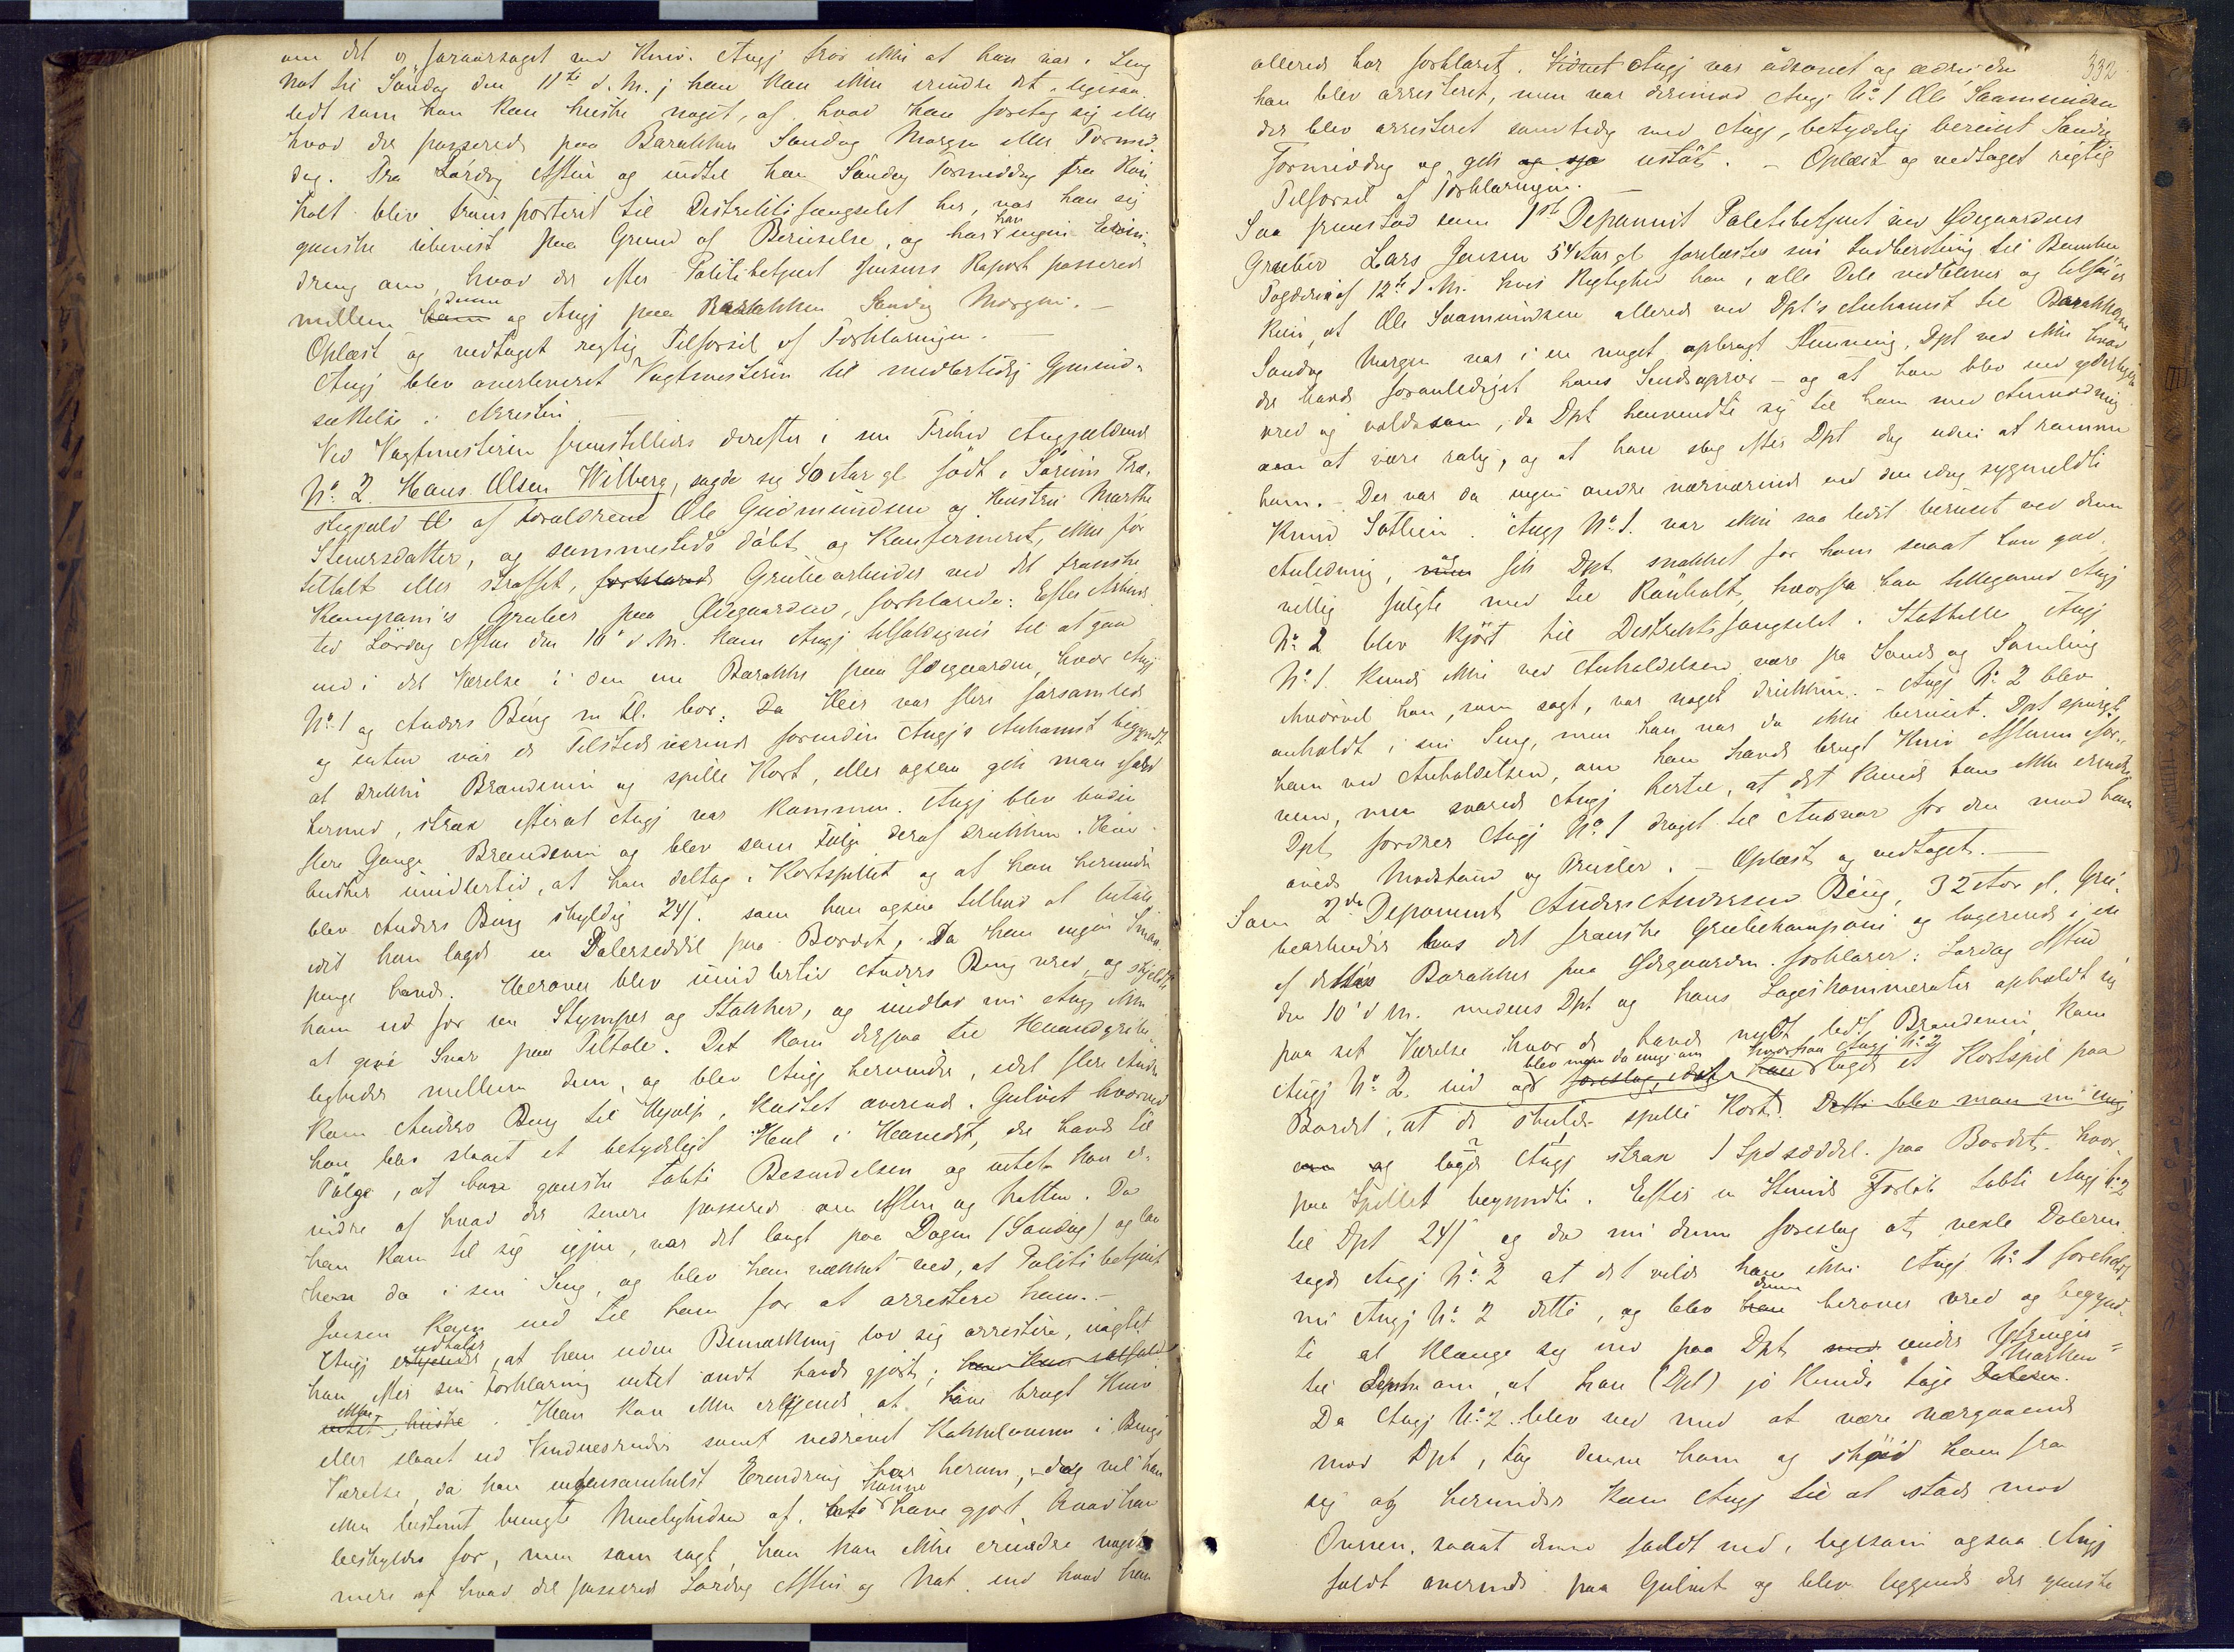 om det er foraarsaget ved Kniv. Angj tror ikke at han var i Seng
Nat til Søndag den 11te d. M.; han kan ikke erindre det, ligesaa
lidt som han kan huske noget, af hvad han foretog sig eller
hvad der passerede paa Barakken Søndag Morgen eller Formid
dag. Fra Lørdag Aften og indtil han Søndag Formiddag fra Kon
holt blev transporteret til Distriktsfængselet her, var han sig
ganske ubevist paa Grund af Beruselse, og har han ingen Erin-
dring om, hvad der efter Politibetjent Jensens Raport passerede
mellem ham denne og Angj paa Barakken Søndag Morgen. —
Oplæst og vedtaget rigtig Tilførsel af Forklaringen.
Angj blev overleveret Vagtmesteren til midlertidig Gjenind-
sættelse i Arresten. —
Ved Vagtmesteren fremstilledes derefter i sin Frihed Angjældende
No. 2. Hans Olsen Wilberg, sagde sig 40 Aar gl født i Sørums Præ-
stegjæld af Forældrene Ole Gudmundsen og Hustru Marthe
Steversdatter, og sammesteds døbt og Konfirmeret, ikke før
tiltalt eller straffet, forklarede Grubearbeider ved det franske
Kompani's Gruber paa Ødegaarden, forklarede: Efter Arbeids
tid Lørdag Aften den 10de d. M. kom Angj tilfældigvis til at gaa
ind i det Værelse i den ene Barakke paa Ødegaarden, hvor Angj
No. 1 og Anders Bing m Fl. bor. Da Heer var flere forsamlede
og enten var de Tilstedeværende forinden Angj's Ankomst begyndt
at drikke Brændevin og spille Kort, eller ogsaa gik man ifærd
hermed, strax efterat Angj var kommen. Angj blev buden
flere Gange Brændevin og blev som Følge deraf drukken. Han
husker imidlertid, at han deltog i Kortspillet og at han herunder
blev Anders Bing skyldig 24 ß. som han ogsaa tilbød at betale,
idet han lagde en Dalerseddel paa Bordet, Da han ingen Smaa
penge havde. Herover blev imidlertid Anders Bing vred og skjeldte
ham ud for en Stymper og Stakker, og undlod nu Angj ikke
at give Svar paa Tiltale. Det kom derpaa til Haandgribe
ligheder mellem dem, og blev Angj herunder, idet flere Andre
kom Anders Bing til Hjælp, kastet overende i Gulvet hvorved
han blev slaaet et betydeligt Hul i Hovedet, der havde til
Følge, at han ganske tabte Besindelsen og intet kan er-
indre af hvad der senere passerede om Aften og Natten. Da
han kom til sig igjen, var det langt paa Dagen (Søndag) og laa
han da i sin Seng, og blev han vækket ved, at Politibetjent
Jensen kom ned til ham for at arrestere ham. —
Angj erkjender udtaler, at han uden Bemærkning lod sig arrestere, uagtet
han efter sin Forklaring intet ondt havde gjort; han kan ialfald
intet ikke huske. Han kan ikke erkjende at have brugt Kniv
eller slaaet ud Vinduesruder samt nedrevet Kakkelovnen i Bings
Værelse, da han ingensomhelst Erindring har herom, dog vil han
ikke bestemt benægte Muligheden af at kunne have gjort, hvad han
beskyldes for, men som sagt, han kan ikke erindre noget
mere af hvad der passerede Lørdag Aften og Nat, end hvad han
332
allerede har forklaret. Vidnet Angj var ædsonet og ædru da
han blev arresteret, men var derimod Angj No. 1 Ole Saamundsen
der blev arresteret samtidig med Angj, betydelig beruset Søndag
Formiddag og gik og sje ustøt. — Oplæst og vedtaget rigtig
Tilførsel af Forklaringen. —
Saa fremstod som 1ste Deponent Politibetjent ved Ødegaardens
Gruber Lars Jensen 54 Aar gl forelæstes sin Indberetning til Bamble
Fogderi af 12te d. M. hvis Rigtighed han i alle Dele vedblever og tilføier
kun, at Ole Saamundsen allerede ved Dpt's Ankomst til Barakken
Søndag Morgen var i en noget opbragt Stemning, Dpt ved ikke hvad
der havde foranlediget hans Sindsoprør — og at han blev end yderligere
vred og voldsom, da Dpt henvendte sig til ham med Anmodning
om at være rolig, og at han slog efter Dpt dog uden at ramme
ham. — Der var da ingen andre nærværende end den idag sygmeldte
Knud Sollien. Angj No. 1. var ikke saa lidet beruset ved denne
Anledning, men og fik Dpt snakket for ham saaat han god-
villig fulgte med til Rønholt, hvorfra han tilligemed Angj
No. 2 blev kjørt til Distriktsfængselet. Stakkels Angj
No. 1. kunde ikke ved Anholdelsen være fra Sands og Samling
Hvorvel han, som sagt, var noget drukken. — Angj No. 2 blev
anholdt i sin Seng, men han var da ikke beruset. Dpt spurgte
ham ved Anholdelsen, om han havde brugt Kniv Aftenen for-
ven, men svarede Angj hertil, at det kunde han ikke erindre
Dpt fordrer Angj No. 1 draget til Ansvar for den mod ham
øvede Modstand og Trusler. — Oplæst og vedtaget. —
Som 2den Deponent Anders Andersen Bing, 32 Aar gl. Gru-
bearbeider hos det franske Grubekompani og logerende i en
af dettes Barakker paa Ødegaarden forklarer: Lørdag Aften
den 10de d M. medens Dpt og hans Logiskammerater opholdt sig
paa sit Værelse hvor de havde nydt lidt Brændevin, kom
blev man da enig om hvorpaa Angj No. 2
Angj No. 2. ind og foreslog, idet han lagde et Kortspil paa
Bordet, at de skulde spille Kort. Dette blev man nu enig
om og lagde Angj strax 1 Spd seddel paa Bordet, hvor
paa Spillet begyndte. Efter en Stunds Forløb tabte Angj No. 2
til Dpt 24 ß og da nu denne foreslog at vexle Daleren
sagde Angj No. 2 at det vilde han ikke. Angj No. 1 foreholdt
nu Angj No. 2 dette, og blev han denne herover vred og begynd-
te at klænge sig ind paa Dpt med under Ytringer
til Denne om, at han (Dpt) jo kunde tage Daleren. Marken
Da Angj No. 2 blev ved med at være nærgaaende
mod Dpt, tog denne ham og skjød ham fra
sig og herunder kom Angj til at støde mod
Ovnen, saaat denne faldt ned, ligesom ogsaa Angj
faldt overende paa Gulvet og blev liggende der ganske